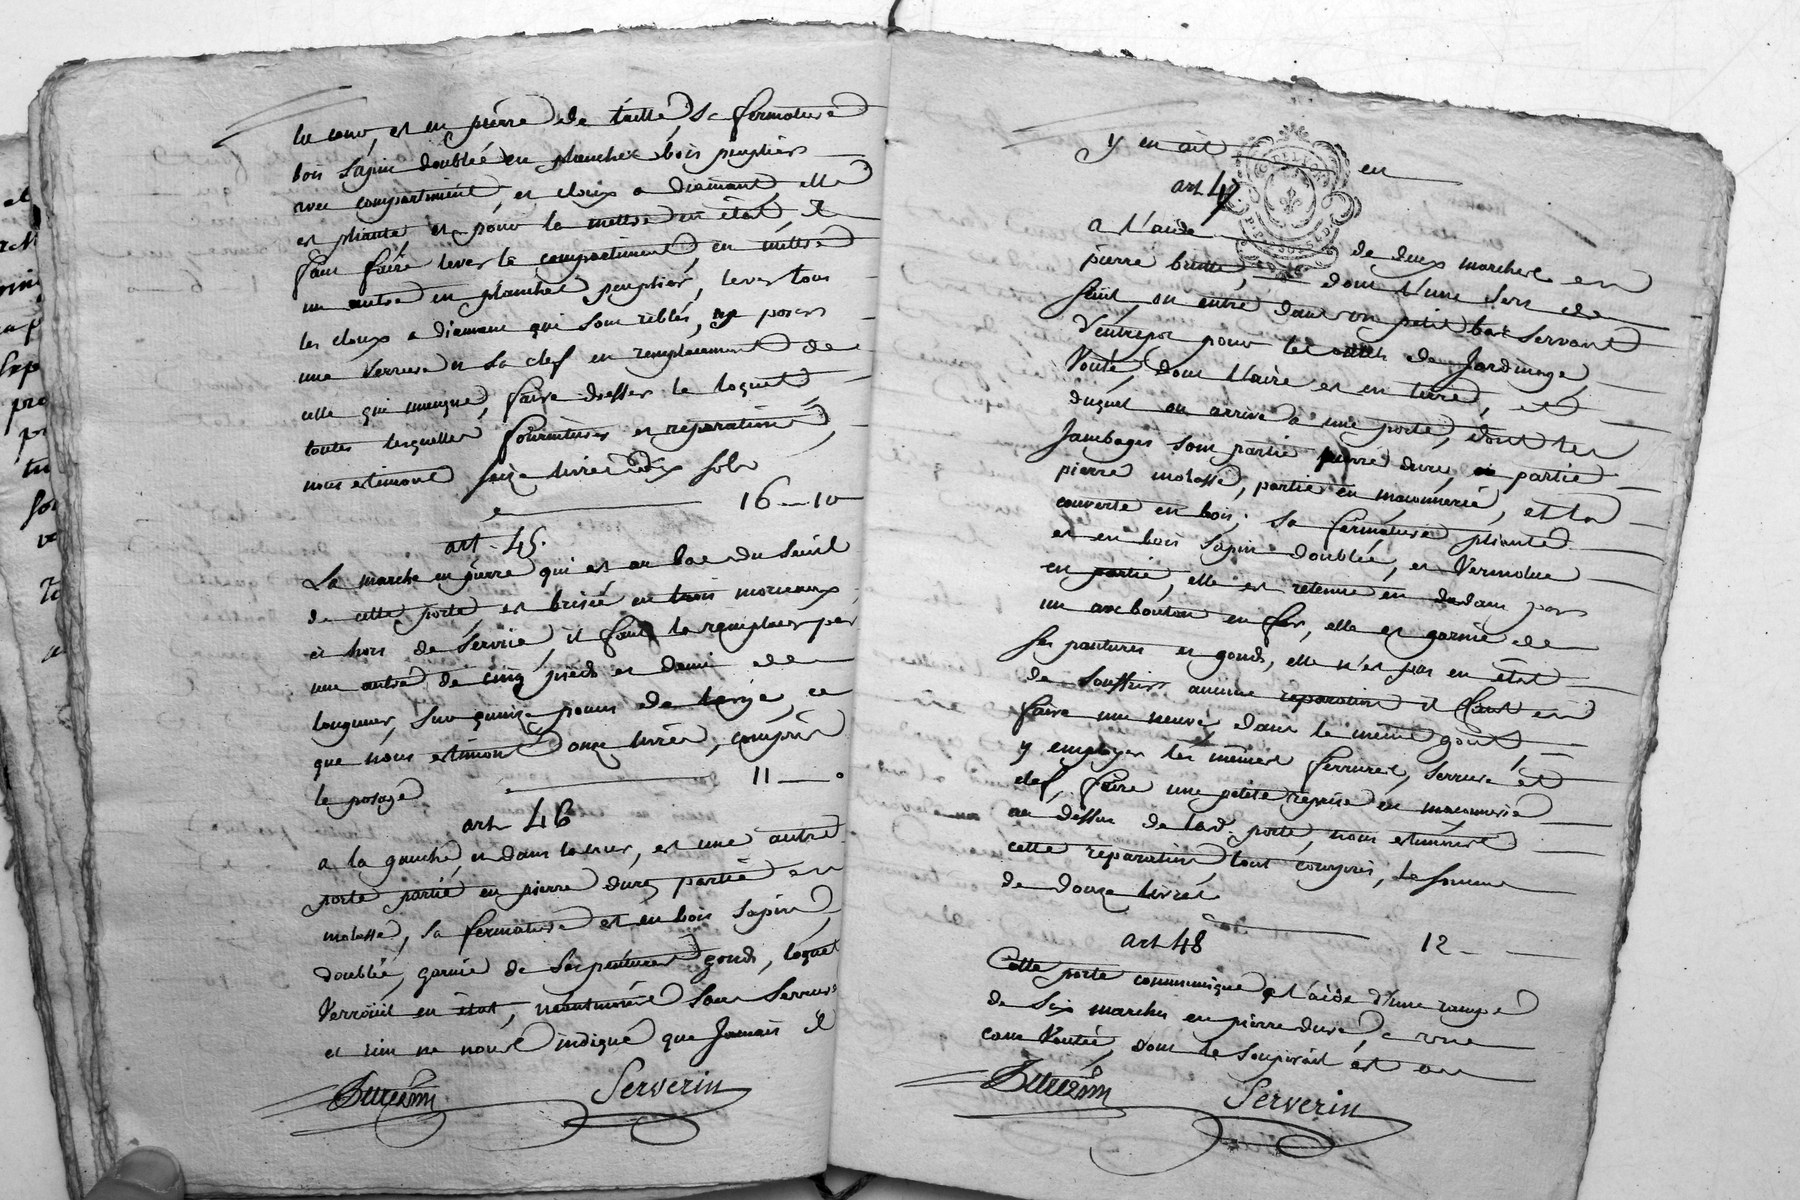 la cour, et en pierre de taille, Sa fermeture
bois Sapin doublée en planches bois peuplier
avec compartiment, et cloux a diamant, elle
est pliante et pour la mettre en état, Il
faut faire lever le compartiment, en mettre
un autre en planches peuplier, lever tous
les cloux a diamant qui sont riblés, poser
une Serrure et Sa clef en remplacement de
celle qui manque, faire dresser le loquet,
toutes lesquelles fournitures et reparations,
nous estimons seize livres dix sols
16 — 10
art. 45.
La marche en pierre qui est au bas du Seuil
de cette porte, est brisée en trois morceaux,
et hors de Service il faut la remplacer par
une autre de cinq pieds et demi de
longueur, Sur quinze pouces de large, ce
que nous estimons onze livres, compris
le posage 11 — 0
art 46
a la gauche et dans la cour, est une autre
porte partie en pierre dure, partie en
molasse, sa fermeture est en bois Sapin,
doublée, garnie de Ses pentures gonds, loquet
Verroüil en état, neantmoins Sans Serrure
et rien ne nous indique que Jamais Il
Serverin
y en ait en
art 47.
a l'aide de deux marches en
pierre brutte, dont l'une sert de
Seuil, on entre dans un petit bas Servant
d'entrepot pour les de Jardinage,
Vouté, dont l'aire est en terre, et
duquel on arrive a une porte, dont les
Jambages sont partie pierre dure, partie
pierre molasse, partie en maconnerie, et la
couverte en bois, Sa fermeture pliante
est en bois Sapin doublée, et Vermolue
en partie, elle est retenue en dedans par
un arcboutan en fer, elle est garnie de
Ses pantures et gonds, elle n'est pas en état
de Souffrir aucune reparation il faut en
faire une neuve, dans le même gout,
y employer les mêmes ferrures, Serrure et
clef, faire une petite reprise en maconnerie
au dessus de lad. porte, nous estimons
cette reparation tout compris, la Somme
de douze livres
12 —
art 48
Cette porte communique a l'aide d'une rampe
de Six marches en pierre dure, a une
cave Voutée, dont le Soupirail est au
Serverin